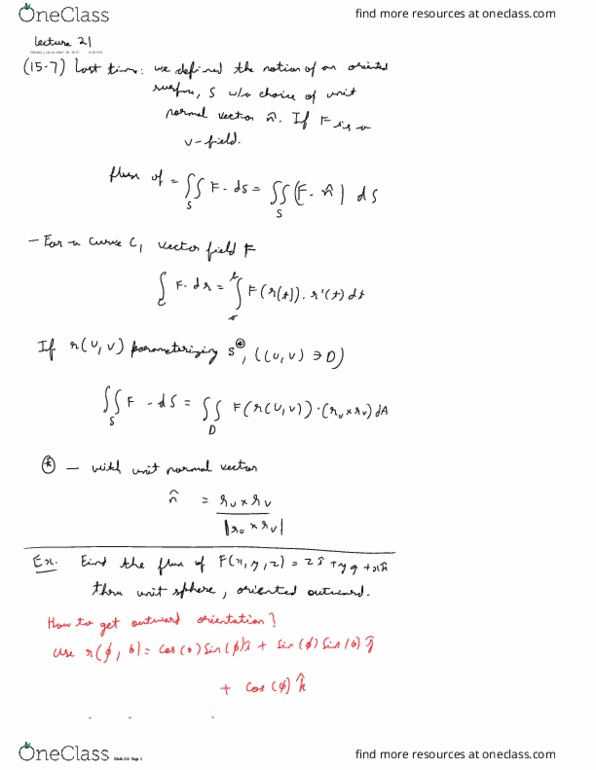 OneClass
find more resources at oneclass.com
lecture 21
(15-7) Last time: we defined the notion of an oriented
surface, S w/a choice of unit
normal vector n̂. If F is a
v-field.
flux of = ∬_S F · dS = ∬_S (F · n̂) dS
- For a curve C, vector field F
∫_C F · dr = ∫ F(r(t)) · r'(t) dt
If r(u,v) parameterizing S⊛, ((u,v) ∋ D)
∬_S F · dS = ∬_D F(r(u,v)) · (r_u × r_v) dA
⊛ - with unit normal vector
n̂ = r_u × r_v / |r_u × r_v|
Ex. Find the flux of F(x, y, z) = z î + y ĵ + x k̂
thru unit sphere, oriented outward.
How to get outward orientation?
use r(ϕ, θ) = cos(θ) sin(ϕ) î + sin(ϕ) sin(θ) ĵ
+ cos(ϕ) k̂
OneClass
Page 1
find more resources at oneclass.com